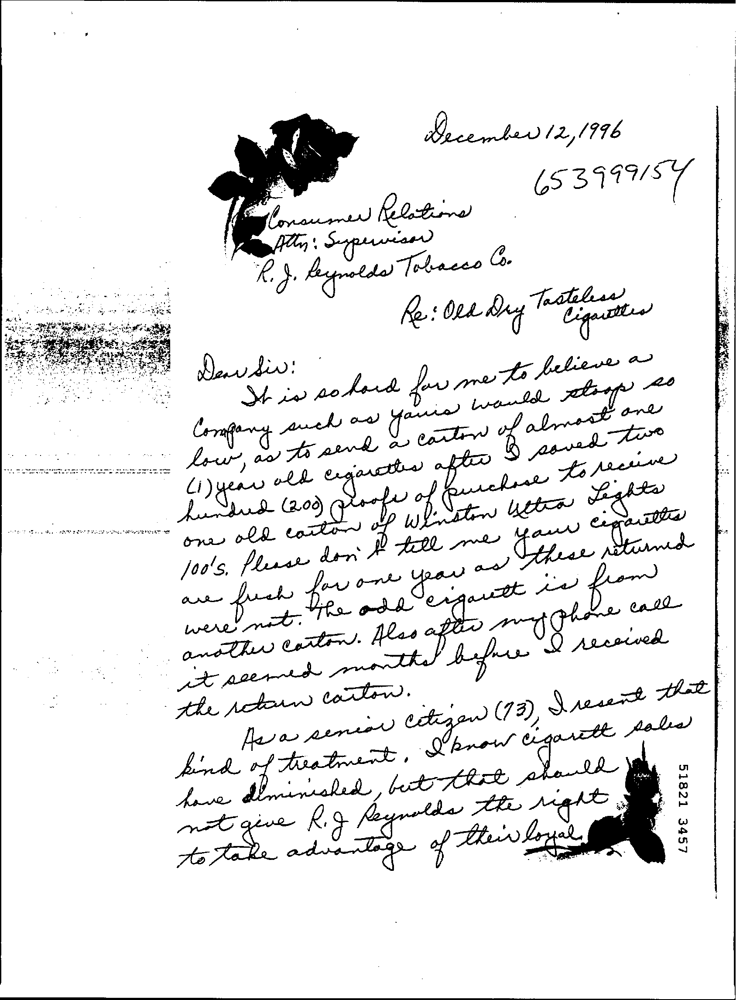 December 12, 1996
653999154
Consumer Relations
Attn: Supervisor
R. J. Reynolds Tobacco Co.
Re: Old Dry Tasteless
Cigarettes
Dear Sir:
It is so hard for me to believe a
Company such as yours would stoop so
low, as to send a carton of almost one
(1) year old cigarettes after I saved two
hundred (200) proofs of purchase to receive
one old carton of Winston Ultra Lights
100's. Please don't tell me your cigarettes
are fresh for one year as these returned
were not. The odd cigarett is from
another carton. Also after my phone call
it seemed months before I received
the return carton.
As a senior citizen (73), I resent that
kind of treatment. I know cigarett sales
have diminished, but that should
not give R. J Reynolds the right
to take advantage of their loyal
51821 3457